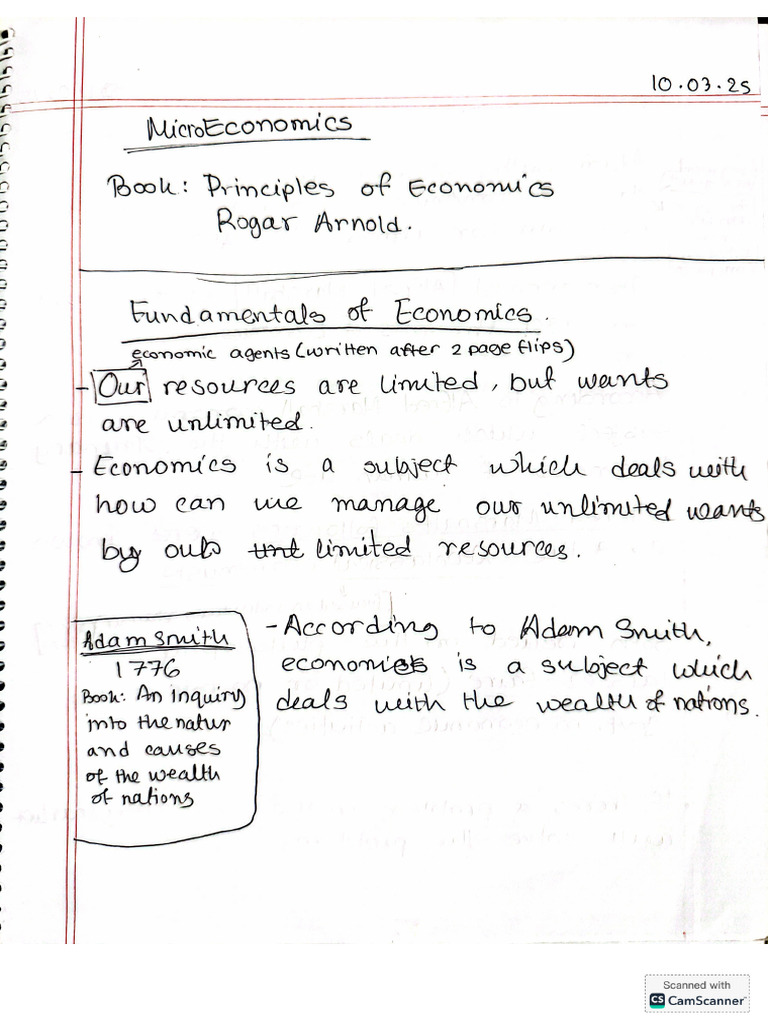 10.03.25
MicroEconomics
Book: Principles of Economics
Rogar Arnold.
Fundamentals of Economics.
economic agents (written after 2 page flips)
- Our resources are limited, but wants
are unlimited.
- Economics is a subject which deals with
how can we manage our unlimited wants
by limited resources.
Adam Smith
1776
Book: An inquiry
into the natur
and causes
of the wealth
of nations
- According to Adam Smith,
economics is a subject which
deals with the wealth of nations.
Scanned with
CS CamScanner